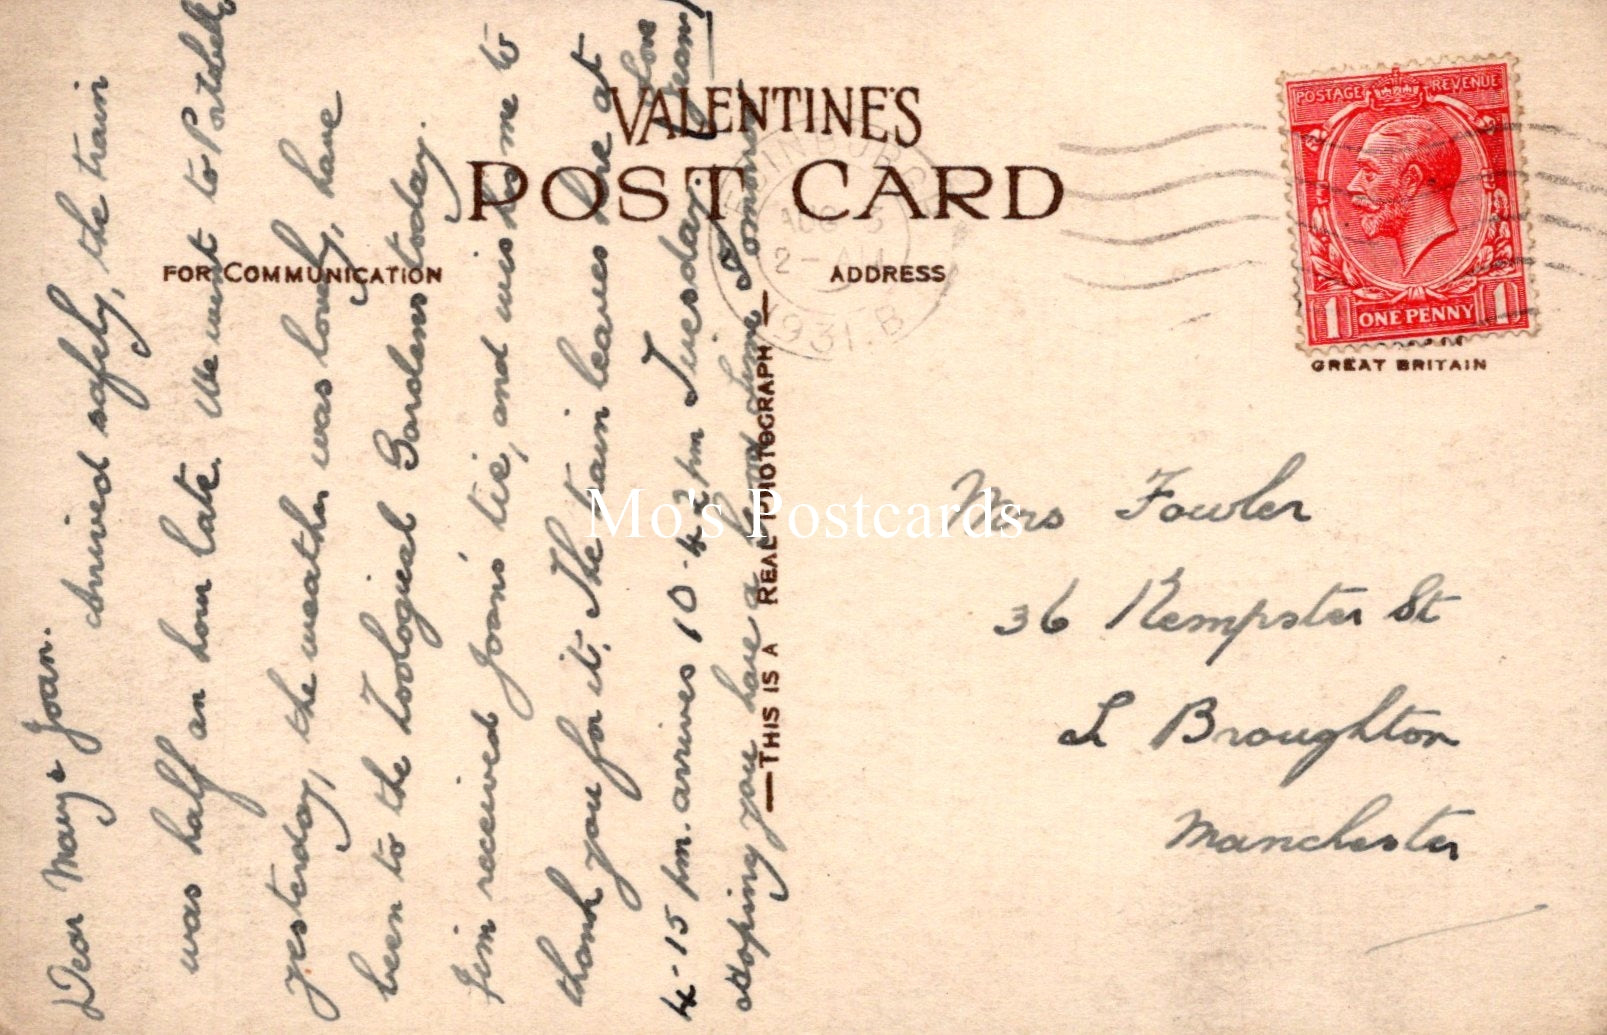 VALENTINE'S
POST CARD
FOR COMMUNICATION
ADDRESS
POSTAGE REVENUE
1 ONE PENNY 1
GREAT BRITAIN
EDINBURGH
AUG 3
2 - AM
1931. B
THIS IS A REAL PHOTOGRAPH
Dear Mary & Joan.
Arrived safely, the train
was half an hour late. We went to Portobello
yesterday, the weather was lovely, have
been to the Zoological Gardens today.
Jim received Joans' tie, and wishes me to
thank you for it. The train leaves here at
4-15 pm. arrives 10-42 pm Tuesday.
Hoping you have a good time Tommorow
Love
Jeany
Mrs Fowler
36 Kempster St
L Broughton
Manchester
Mo's Postcards